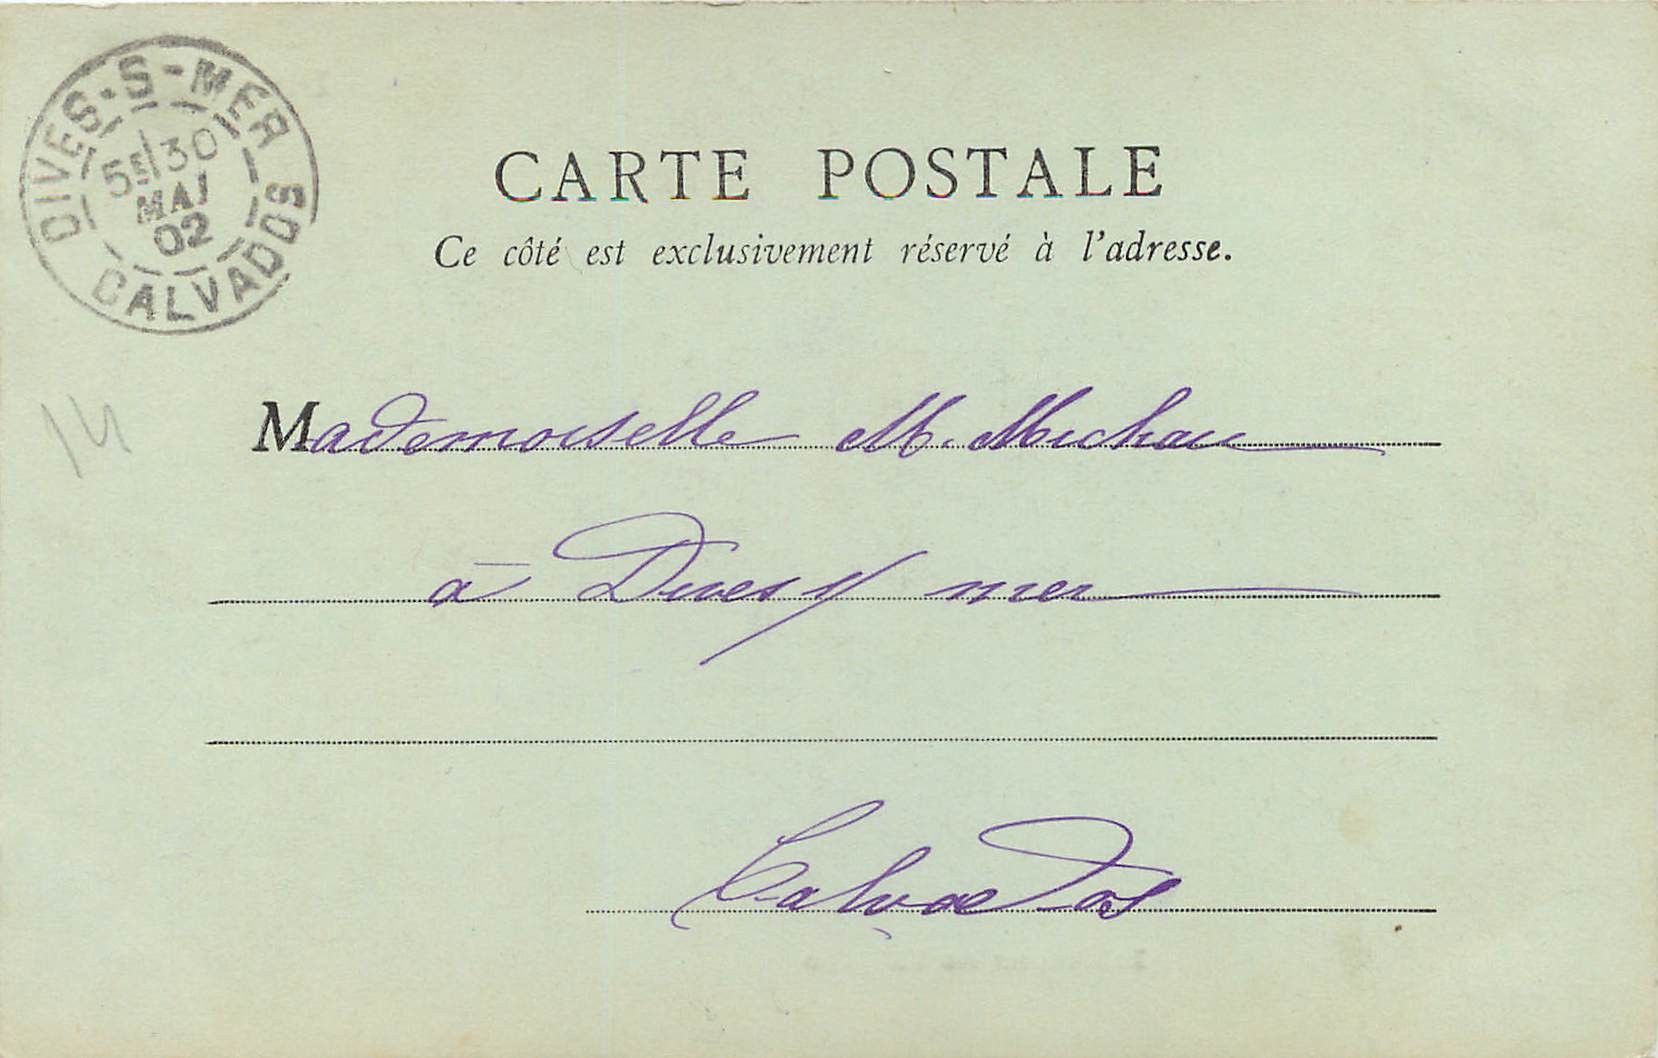 DIVES-S-MER
5E/30
MAI
02
CALVADOS
CARTE POSTALE
Ce côté est exclusivement réservé à l'adresse.
14
Mademoiselle M. Michau
à Dives s/ mer
Calvados